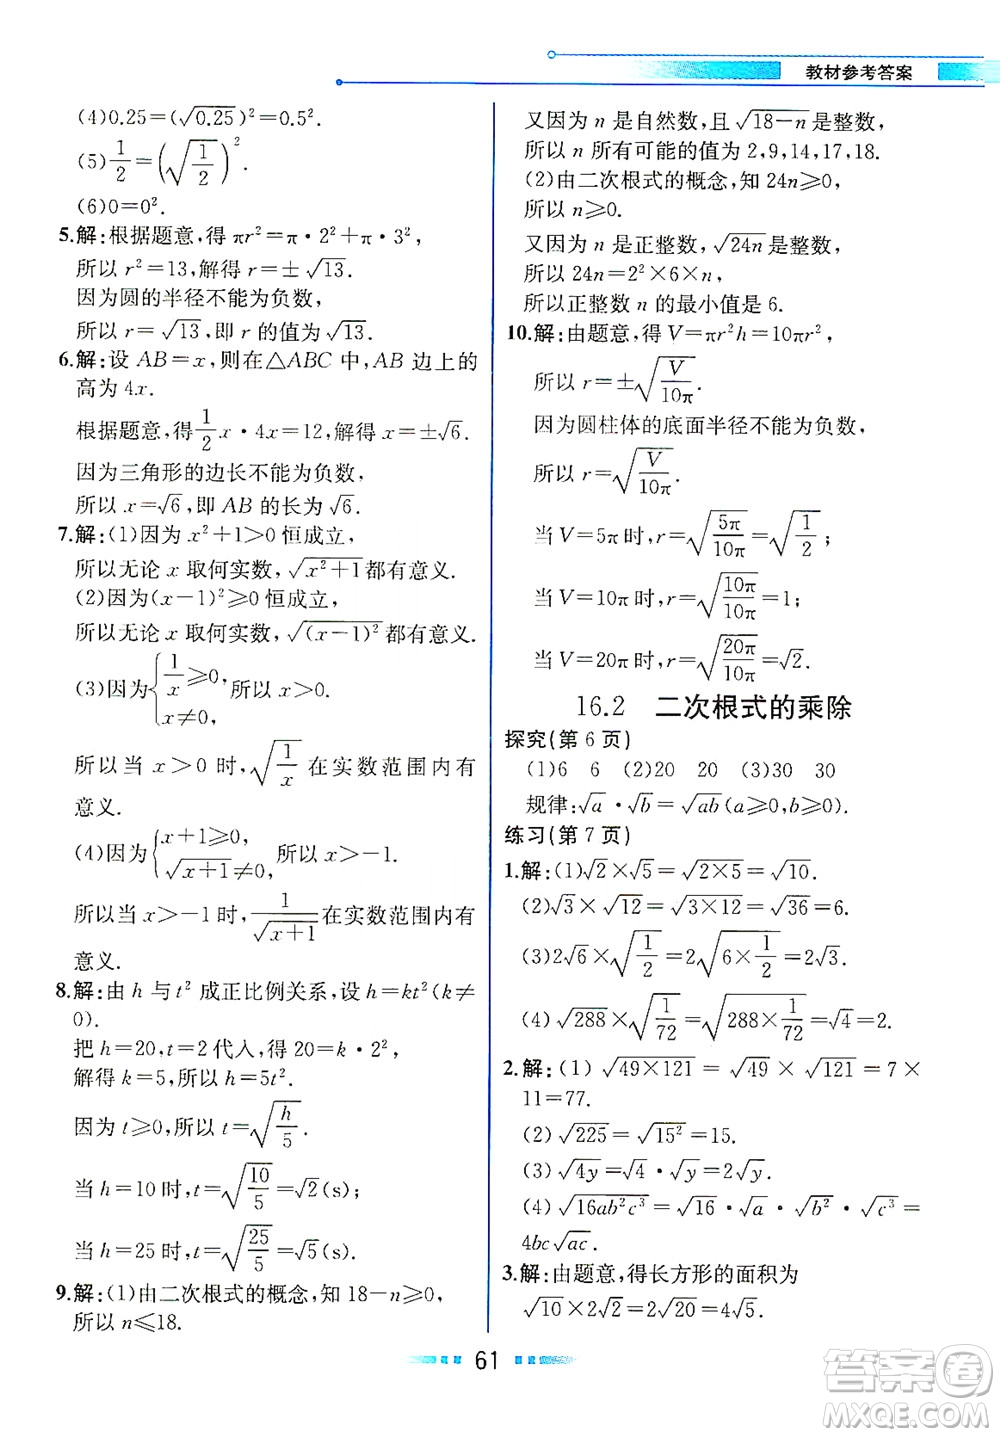 教材参考答案
(4)0.25=(√0.25)²=0.5².
(5)1/2=(√(1/2))².
(6)0=0².
5.解:根据题意,得 πr²=π·2²+π·3²,
所以 r²=13,解得 r=±√13.
因为圆的半径不能为负数,
所以 r=√13,即 r 的值为√13.
6.解:设 AB=x,则在△ABC 中,AB 边上的
高为 4x.
根据题意,得1/2x·4x=12,解得 x=±√6.
因为三角形的边长不能为负数,
所以 x=√6,即 AB 的长为√6.
7.解:(1)因为 x²+1>0 恒成立,
所以无论 x 取何实数,√(x²+1)都有意义.
(2)因为(x-1)²≥0 恒成立,
所以无论 x 取何实数,√((x-1)²)都有意义.
(3)因为{1/x≥0, x≠0, 所以 x>0.
所以当 x>0 时,√(1/x)在实数范围内有
意义.
(4)因为{x+1≥0, √(x+1)≠0, 所以 x>-1.
所以当 x>-1 时,1/√(x+1)在实数范围内有
意义.
8.解:由 h 与 t² 成正比例关系,设 h=kt²(k≠
0).
把 h=20,t=2 代入,得 20=k·2²,
解得 k=5,所以 h=5t².
因为 t≥0,所以 t=√(h/5).
当 h=10 时,t=√(10/5)=√2(s);
当 h=25 时,t=√(25/5)=√5(s).
9.解:(1)由二次根式的概念,知 18-n≥0,
所以 n≤18.
又因为 n 是自然数,且√(18-n)是整数,
所以 n 所有可能的值为 2,9,14,17,18.
(2)由二次根式的概念,知 24n≥0,
所以 n≥0.
又因为 n 是正整数,√(24n)是整数,
所以 24n=2²×6×n,
所以正整数 n 的最小值是 6.
10.解:由题意,得 V=πr²h=10πr²,
所以 r=±√(V/10π).
因为圆柱体的底面半径不能为负数,
所以 r=√(V/10π).
当 V=5π 时,r=√(5π/10π)=√(1/2);
当 V=10π 时,r=√(10π/10π)=1;
当 V=20π 时,r=√(20π/10π)=√2.
16.2 二次根式的乘除
探究(第 6 页)
(1)6 6 (2)20 20 (3)30 30
规律:√a·√b=√(ab)(a≥0,b≥0).
练习(第 7 页)
1.解:(1)√2×√5=√(2×5)=√10.
(2)√3×√12=√(3×12)=√36=6.
(3)2√6×√(1/2)=2√(6×1/2)=2√3.
(4)√288×√(1/72)=√(288×1/72)=√4=2.
2.解:(1)√(49×121)=√49×√121=7×
11=77.
(2)√225=√(15²)=15.
(3)√(4y)=√4·√y=2√y.
(4)√(16ab²c³)=√16·√a·√(b²)·√(c³)=
4bc√(ac).
3.解:由题意,得长方形的面积为
√10×2√2=2√20=4√5.
61
答案圈
MXQE.COM